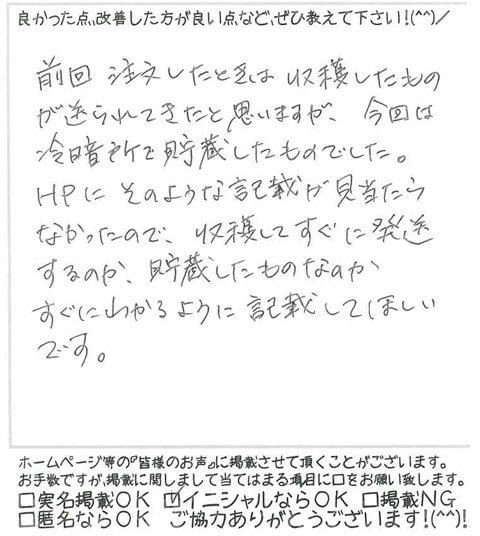 良かった点、改善した方が良い点など、ぜひ教えて下さい!(^^)/
前回 注文したときは 収穫したもの
が送られてきたと思いますが、今回は
冷暗所で貯蔵したものでした。
HPに そのような記載が見当たら
なかったので、収穫してすぐに発送
するのか、貯蔵したものなのか
すぐにわかるように記載してほしい
です。
ホームページ等の『皆様のお声』に掲載させて頂くことがございます。
お手数ですが、掲載に関しまして当てはまる項目に□をお願い致します。
□実名掲載OK ☑イニシャルならOK □掲載NG
□匿名ならOK ご協力ありがとうございます!(^^)!